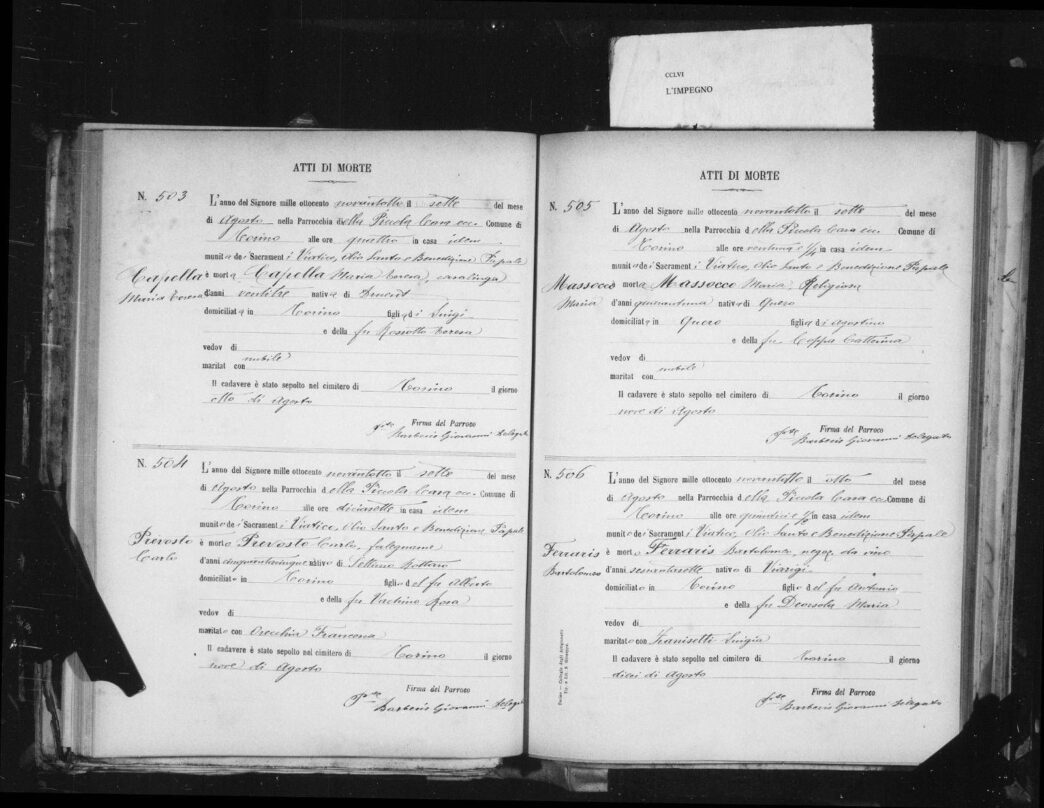 CCLVI
L'IMPEGNO
ATTI DI MORTE
N. 503
L'anno del Signore mille ottocento novantotto il sette del mese
di Agosto nella Parrocchia della Piccola Casa ecc. Comune di
Torino alle ore quattro in casa idem
munita dei Sacramenti Viatico, Olio Santo e Benedizione Papale
Capella è morta Capella Maria Teresa, casalinga
Maria Teresa d'anni ventitre nativa di
domiciliata in Torino figlia di Luigi
e della fu Rossotto Teresa
vedov di
nubile
maritat con
Il cadavere è stato sepolto nel cimitero di Torino il giorno
otto di Agosto
Firma del Parroco
Barberis Giovanni Delegato
N. 504
L'anno del Signore mille ottocento novantotto il sette del mese
di Agosto nella Parrocchia della Piccola Casa ecc. Comune di
Torino alle ore diciasette in casa idem
munito dei Sacramenti Viatico, Olio Santo e Benedizione Papale
Prevosto è morto Prevosto Carlo, falegname
Carlo d'anni cinquantacinque nativo di Settimo Rottaro
domiciliato in Torino figlio del fu Alberto
e della fu Rosa
vedov di
maritato con Orecchia Francesca
Il cadavere è stato sepolto nel cimitero di Torino il giorno
nove di Agosto
Firma del Parroco
Barberis Giovanni Delegato
ATTI DI MORTE
N. 505
L'anno del Signore mille ottocento novantotto il sette del mese
di Agosto nella Parrocchia della Piccola Casa ecc. Comune di
Torino alle ore ventuna e 1/2 in casa idem
munita dei Sacramenti Viatico, Olio Santo e Benedizione Papale
Massocco morta Massocco Maria, Religiosa
Maria d'anni quarantuna nativa di Quero
domiciliata in Quero figlia di Agostino
e della fu Coppa Catterina
vedov di
nubile
maritat con
Il cadavere è stato sepolto nel cimitero di Torino il giorno
nove di Agosto
Firma del Parroco
Barberis Giovanni Delegato
N. 506
L'anno del Signore mille ottocento novantotto il otto del mese
di Agosto nella Parrocchia della Piccola Casa ecc. Comune di
Torino alle ore quindici e 1/2 in casa idem
munito dei Sacramenti Viatico, Olio Santo Benedizione Papale
Ferraris è morto Ferraris Bartolomeo, negoz. da vino
Bartolomeo d'anni sessantasette nativo di Viarigi
domiciliato in Torino figlio del fu Antonio
e della fu Deorsola Maria
vedov di
maritato con Luigia
Il cadavere è stato sepolto nel cimitero di Torino il giorno
dieci di Agosto
Firma del Parroco
Barberis Giovanni Delegato